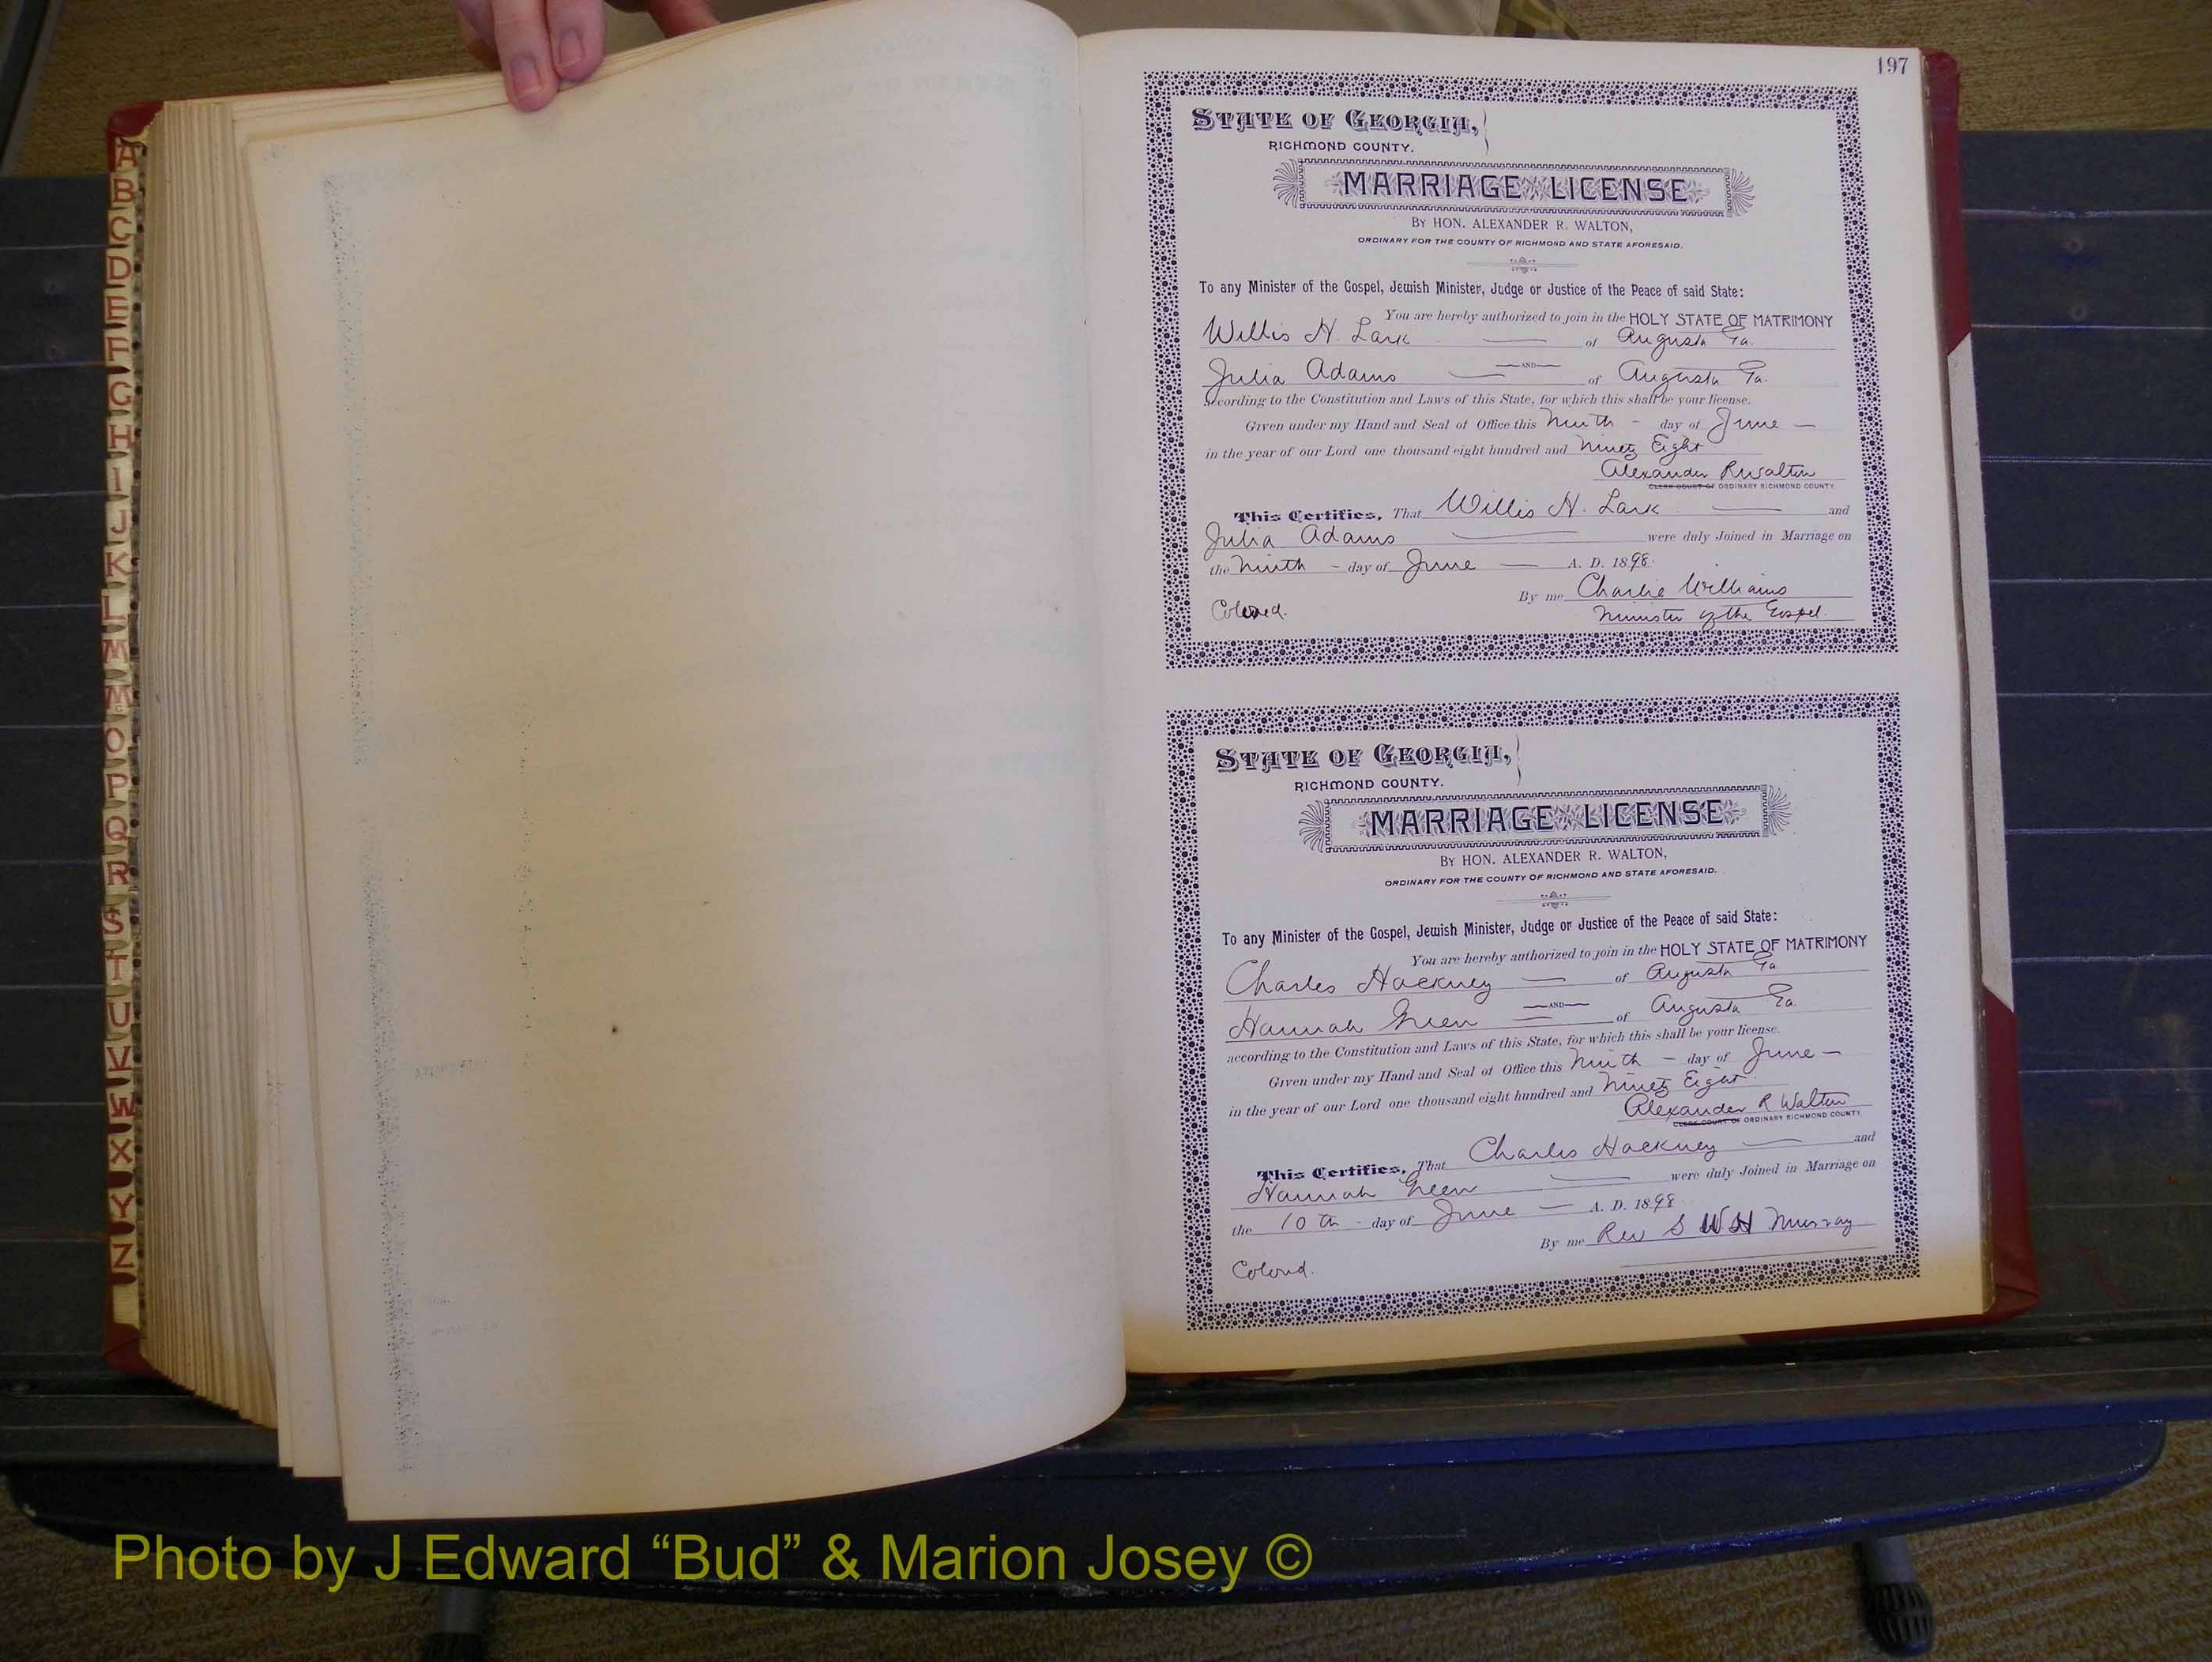 A
B
C
D
E
F
G
H
I
J
K
L
M
Mc
O
P
Q
R
S
T
U
V
W
X
Y
Z
197
STATE OF GEORGIA,
RICHMOND COUNTY.
MARRIAGE LICENSE
BY HON. ALEXANDER R. WALTON,
ORDINARY FOR THE COUNTY OF RICHMOND AND STATE AFORESAID.
To any Minister of the Gospel, Jewish Minister, Judge or Justice of the Peace of said State:
You are hereby authorized to join in the HOLY STATE OF MATRIMONY
Willis H. Lark — of Augusta Ga.
—AND—
Julia Adams — of Augusta Ga.
according to the Constitution and Laws of this State, for which this shall be your license.
Given under my Hand and Seal of Office this Ninth - day of June —
in the year of our Lord one thousand eight hundred and Ninety Eight
Alexander R Walton
CLERK COURT OF ORDINARY RICHMOND COUNTY
This Certifies, That Willis H. Lark — and
Julia Adams — were duly Joined in Marriage on
the Ninth - day of June — A. D. 1898.
By me Charlie Williams
Colored. Minister of the Gospel.
STATE OF GEORGIA,
RICHMOND COUNTY.
MARRIAGE LICENSE
BY HON. ALEXANDER R. WALTON,
ORDINARY FOR THE COUNTY OF RICHMOND AND STATE AFORESAID.
To any Minister of the Gospel, Jewish Minister, Judge or Justice of the Peace of said State:
You are hereby authorized to join in the HOLY STATE OF MATRIMONY
Charles Hackney — of Augusta Ga
—AND—
Hannah Green — of Augusta Ga.
according to the Constitution and Laws of this State, for which this shall be your license.
Given under my Hand and Seal of Office this Ninth - day of June —
in the year of our Lord one thousand eight hundred and Ninety Eight
Alexander R Walton
CLERK COURT OF ORDINARY RICHMOND COUNTY.
This Certifies, That Charles Hackney — and
Hannah Green — were duly Joined in Marriage on
the 10th - day of June — A. D. 1898
By me Rev S W H Murray
Colored.
Photo by J Edward “Bud” & Marion Josey ©